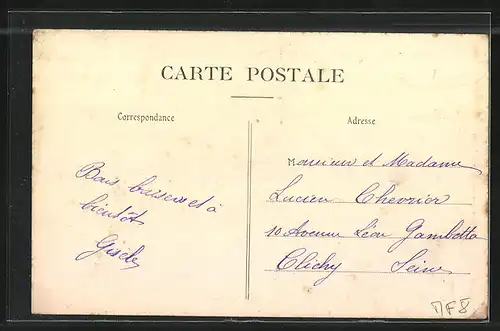 CARTE POSTALE
Correspondance
Adresse
Bons baisers et à
bientôt
Gisèle
Monsieur et Madame
Lucien Chevrier
10 Avenue Léon Gambetta
Clichy Seine